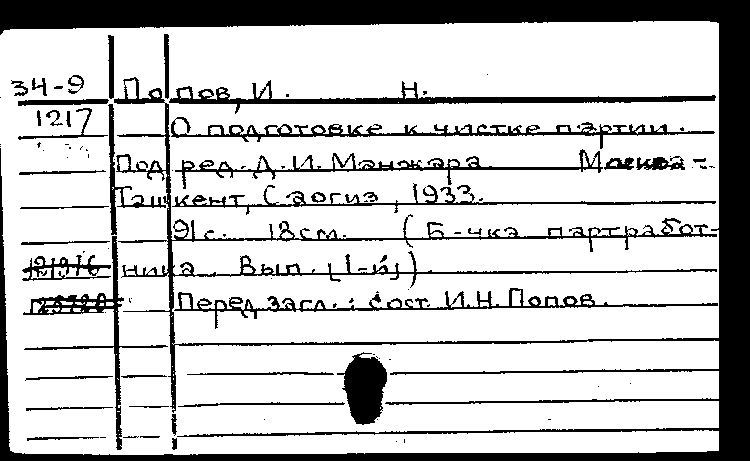 34-9 Попов, И. Н.
1217 О подготовке к чистке партии.
Под ред. Д. И. Манжара. Москва -
Ташкент, Саогиз, 1933.
91 с. 18 см. (Б-чка партработ-
ника. Вып. [1-й]).
Перед загл.: сост. И. Н. Попов.